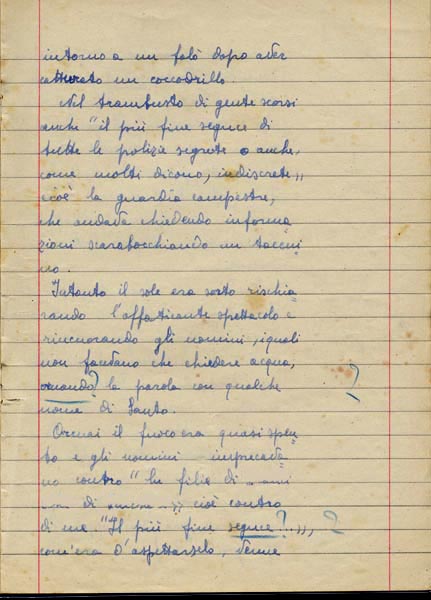 intorno a un falò dopo aver
catturato un coccodrillo.
Nel trambusto di gente scorsi
anche "il più fine segnce di
tutte le polizie segrete o anche,
come molti dicono, indiscrete",
cioè la guardia campestre,
che andava chiedendo informa
zioni scarabocchiando un taccui
no.
Intanto il sole era sorto rischia
rando l'affaticante spettacolo e
rincuorando gli uomini, i quali
non facevano che chiedere acqua,
ornando? la parola con qualche
nome di Santo. ?
Ormai il fuoco era quasi spen
to e gli uomini impreca
no contro "
di cioè contro
di me. "Il più fine segnce?...", ?
com'era d'aspettarselo, venne